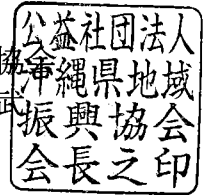 公益社団法人
沖縄県地域
振興協会
会長之印
協
武